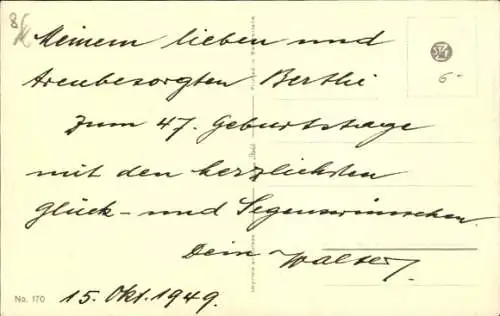 Meinem lieben und
treubesorgten Berthi
zum 47. Geburtstage
mit den herzlichsten
Glück- und Segenswünschen.
Dein Walter.
15. Okt. 1949.
No. 170
6-